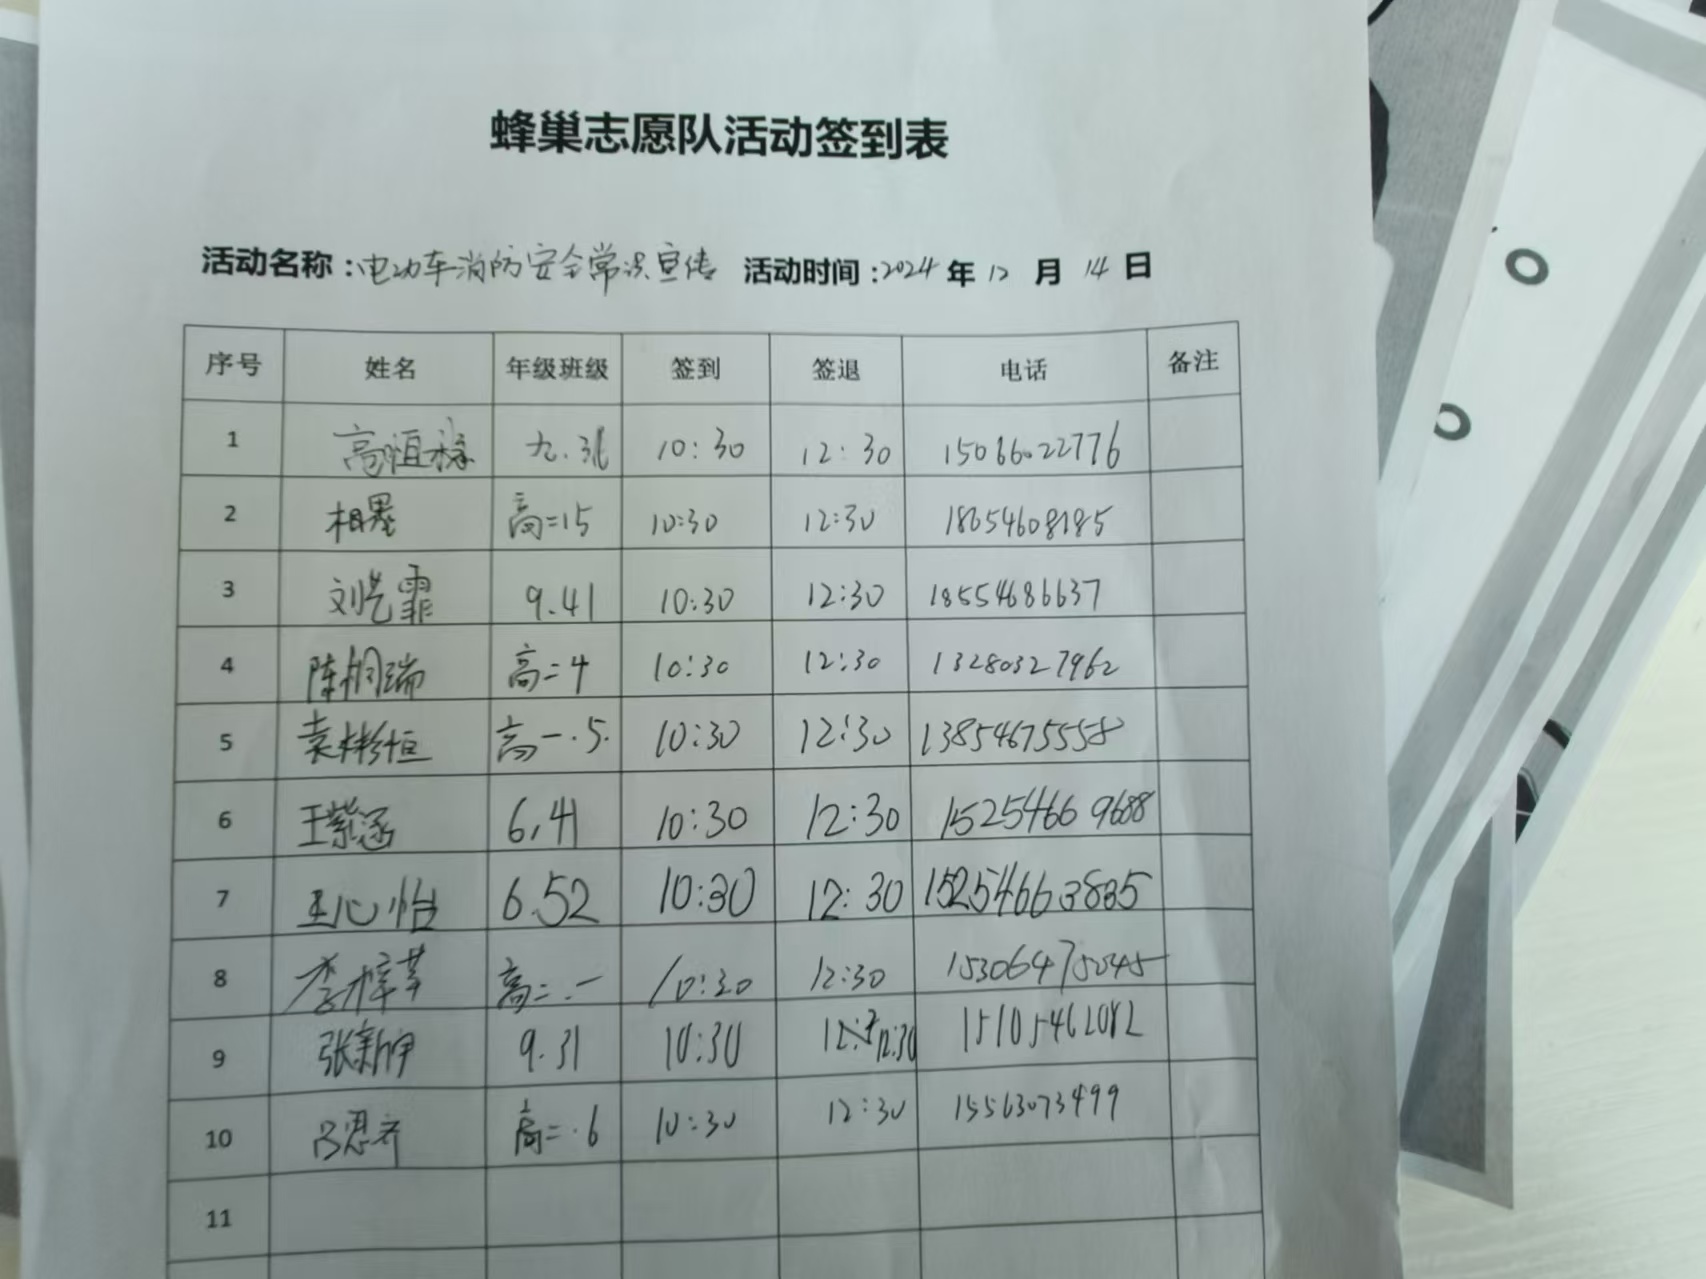 蜂巢志愿队活动签到表
活动名称：电动车消防安全常识宣传 活动时间：2024年12月14日
序号 姓名 年级班级 签到 签退 电话 备注
1 高恒禄 九.31 10:30 12:30 15066022776
2 相墨 高二15 10:30 12:30 18054608185
3 刘艺霏 9.41 10:30 12:30 18554686637
4 陈桐瑞 高二4 10:30 12:30 13280327962
5 袁彬恒 高一.5. 10:30 12:30 13854675558
6 王紫涵 6.41 10:30 12:30 15254669688
7 王心怡 6.52 10:30 12:30 15254663835
8 李梓苹 高二.一 10:30 12:30 15306475045
9 张新伊 9.31 10:30 12:30 15105462082
10 吕思齐 高二.6 10:30 12:30 15563073499
11